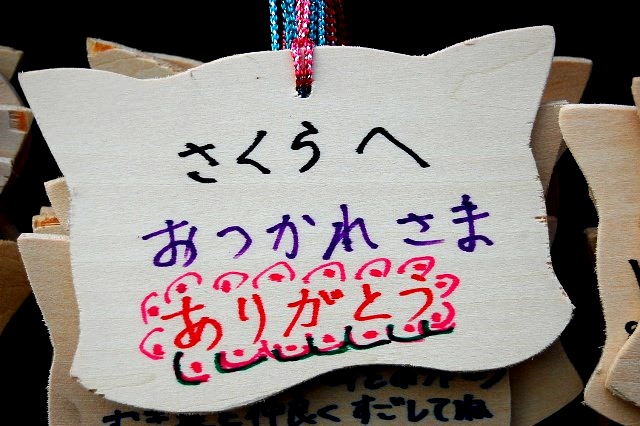 さくらへ
おつかれさま
ありがとう
仲良くすごしてね